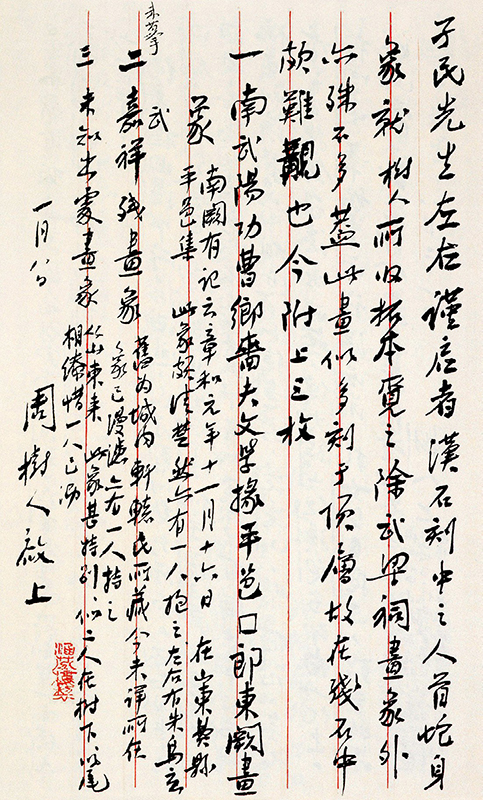 孑民先生左右謹啟者漢石刻中之人首蛇身
象就樹人所收拓本覓之除武梁祠畫象外
亦殊不多蓋此畫似多刻于頂層故在殘石中
頗難覯也今附上三枚
一南武陽功曹鄉嗇夫文學掾平邑口郎東闕畫
象
南闕有記云章和元年十一月十六日 在山東費縣
平邑集 此象頗清楚然亦有一人抱之左右有朱鳥玄
武
二嘉祥殘畫象
舊為城內軒轅氏所藏今未詳所在
象已漫漶亦有一人持之
三未知出處畫象
從山東來 此象甚特別似二人在樹下以尾
相繚惜一人已泐
一月八日
周樹人啟上